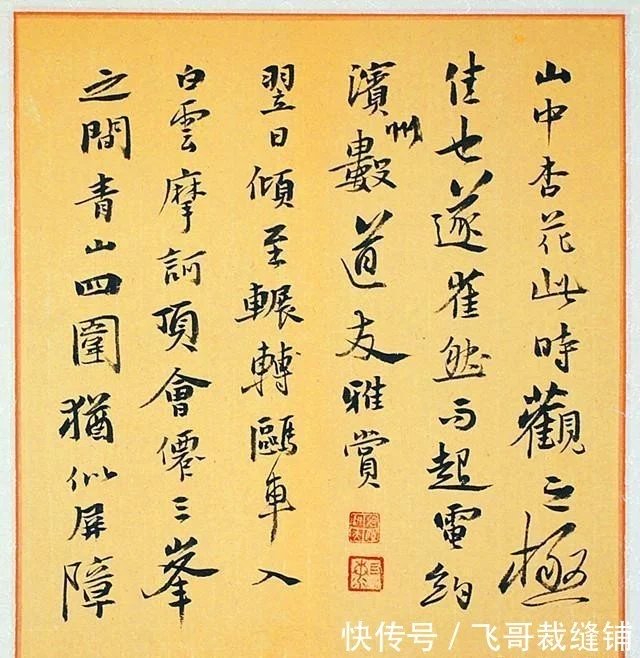 山中杏花此時觀之極
佳也遂雀然而起電約
濱州數道友雅賞
翌日傾至輾轉鷗車入
白雲摩訶頂會僊三峯
之間青山四圍猶似屏障
快传号 / 飞哥裁缝铺